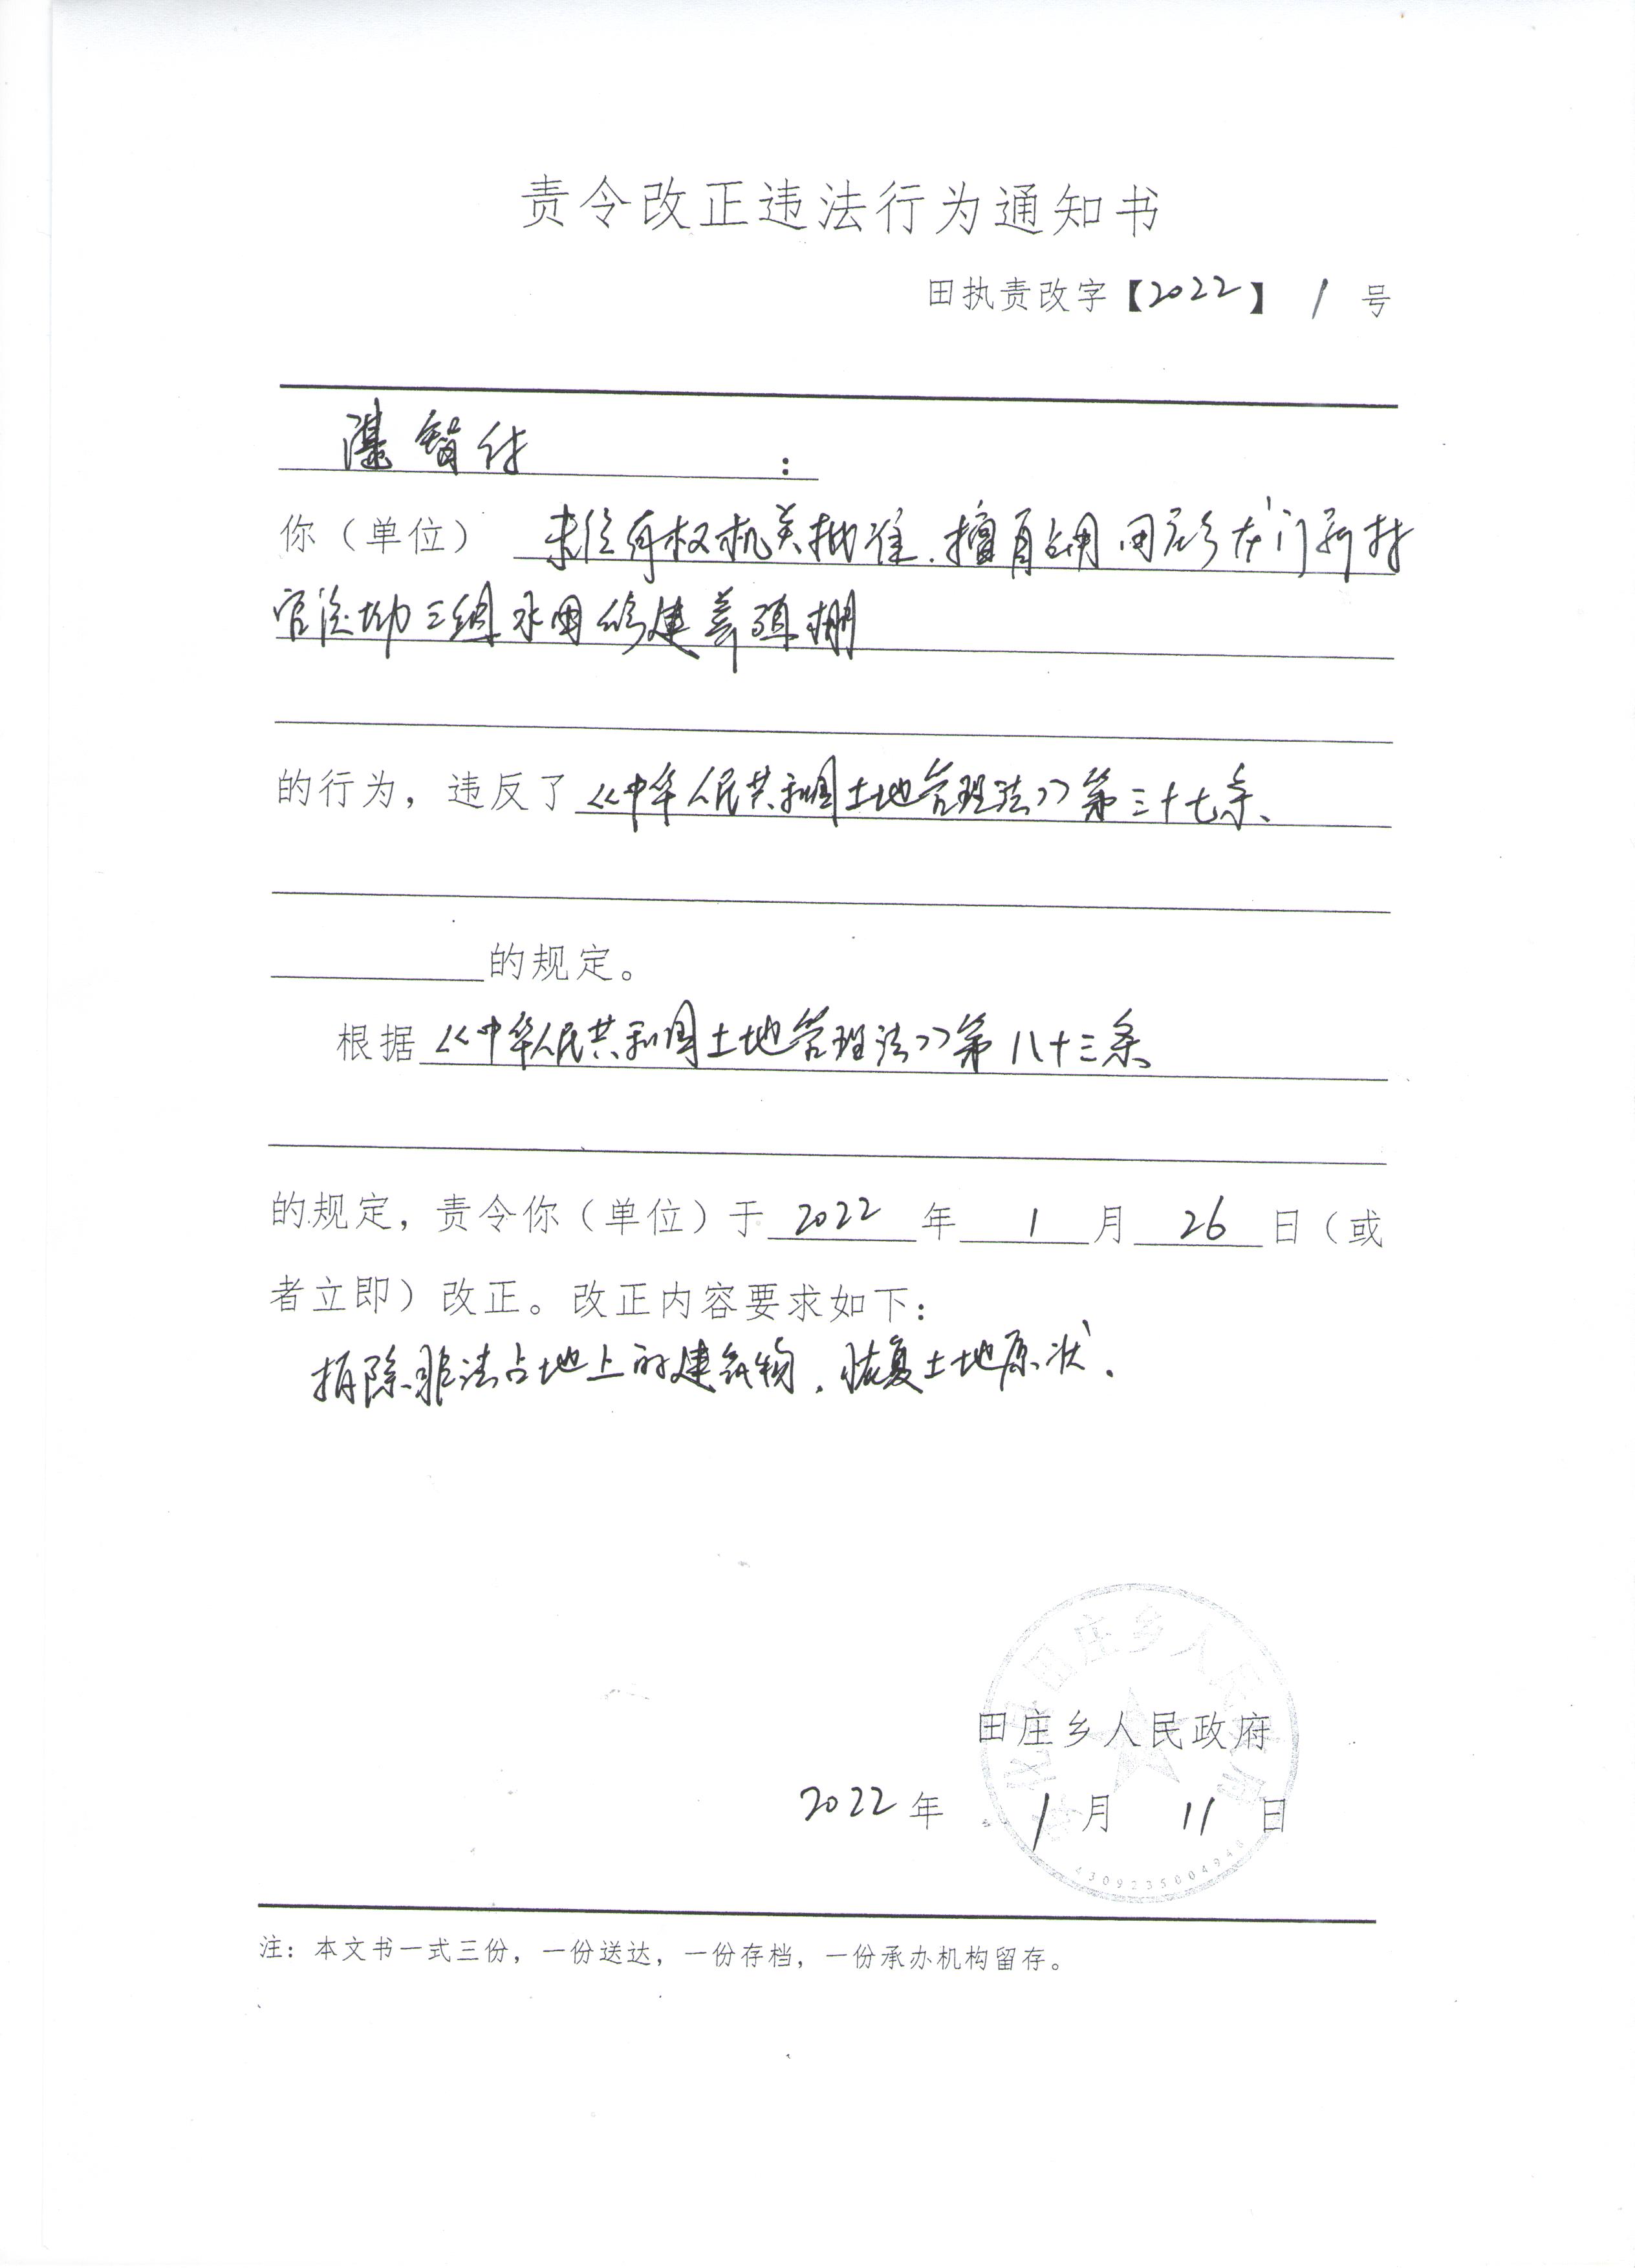 责令改正违法行为通知书
田执责改字【2022】 1 号
谌智付：
你（单位） 未经有权机关批准，擅自占用田庄乡天门新村
官溪坳三组水田修建养殖棚
的行为，违反了《中华人民共和国土地管理法》第三十七条、
的规定。
根据《中华人民共和国土地管理法》第八十三条
的规定，责令你（单位）于 2022 年 1 月 26 日（或
者立即）改正。改正内容要求如下：
拆除非法占地上的建筑物，恢复土地原状。
田庄乡人民政府
2022 年 1 月 11 日
安化县田庄乡人民政府
4309235004948
注：本文书一式三份，一份送达，一份存档，一份承办机构留存。